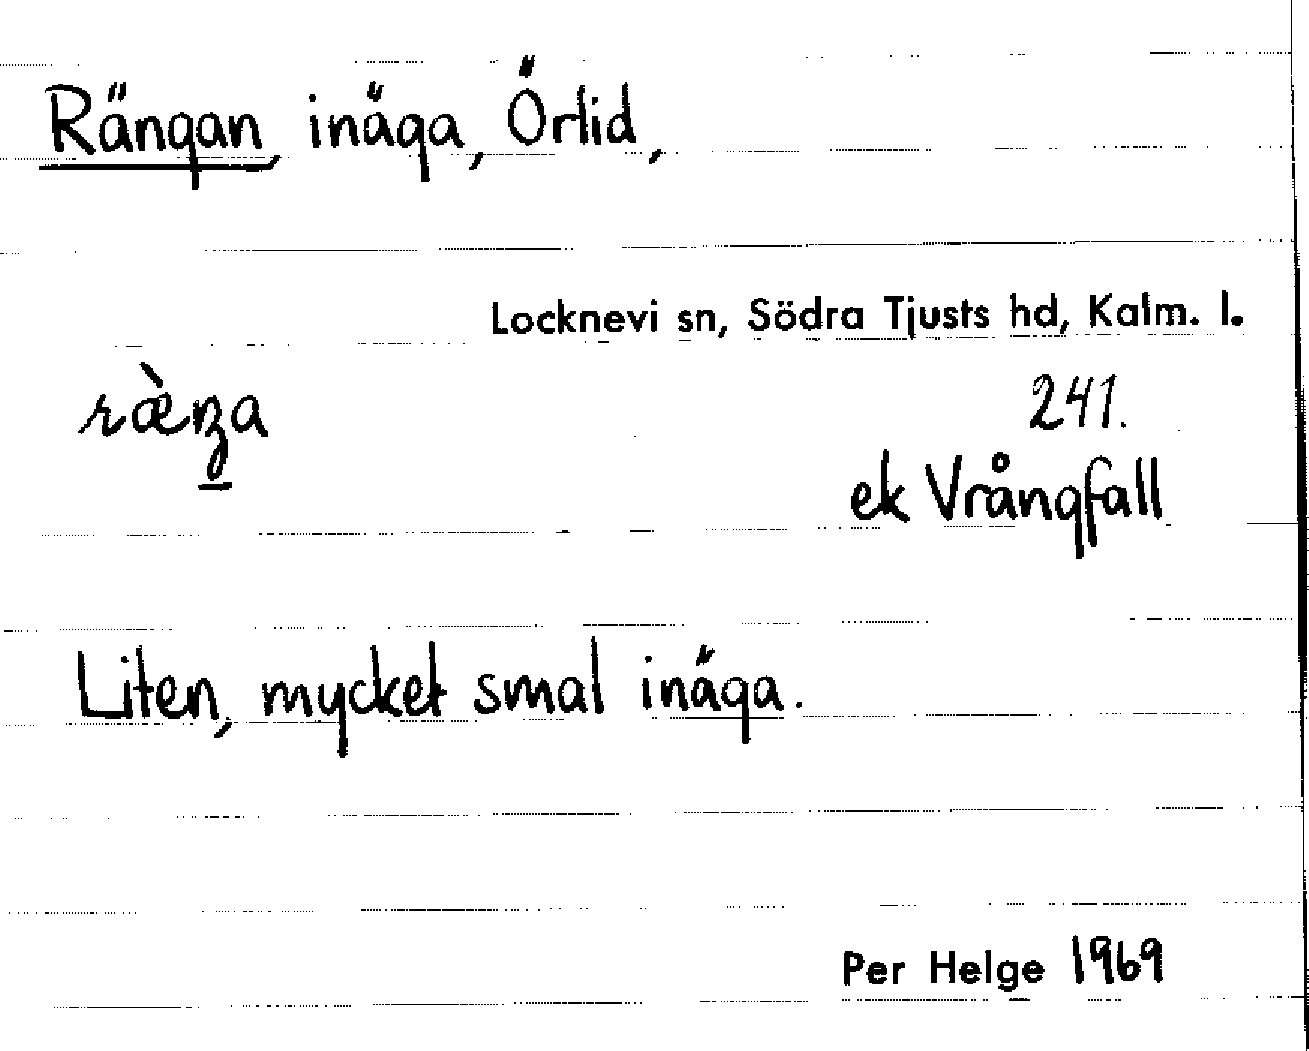 Rängan, inäga, Örlid,
Locknevi sn, Södra Tjusts hd, Kalm. l.
241.
ek Vrångfall
Liten, mycket smal inäga.
Per Helge 1969